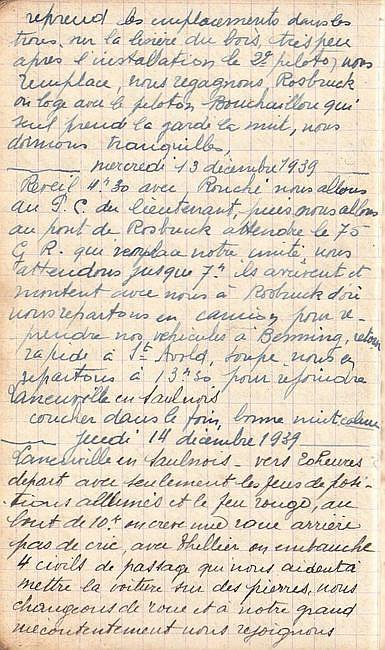 reprend les emplacements dans les
trous, sur la lisière du bois, très peu
après l'installation le 2e peloton nous
remplace, nous regagnons Rosbruck
on loge avec le peloton Bouchaillou qui
seul prends la garde la nuit, nous
dormons tranquilles,
mercredi 13 décembre 1939
Reveil 4h30 avec Rouché nous allons
au P.C. du lieutenant, puis nous allons
au pont de Rosbruck attendre le 75
G R. qui remplace notre unité, nous
attendons jusque 7h ils arrivent et
montent avec nous à Rosbruck d'où
nous repartons en camion pour re-
prendre nos véhicules à Benning, retour
rapide à St Avold, soupe nous en
repartons à 13h30 pour rejoindre
Laneuville en Saulnois
coucher dans le foin, bonne nuit calme
Jeudi 14 décembre 1939
Laneuville en Saulnois - vers 20heures
depart avec seulement les feux de posi-
tions allumés et le feu rouge, au
bout de 10k on creve une roue arrière
pas de cric, avec Thellier on embauche
4 civils de passage qui nous aident à
mettre la voiture sur des pierres, nous
changeons de roue et à notre grand
mécontentement nous rejoignons